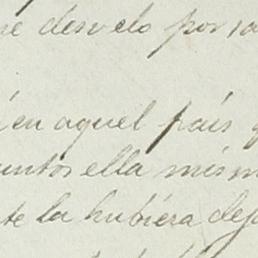 desvelo por
en aquel país
ella mism
te la hubiera dej